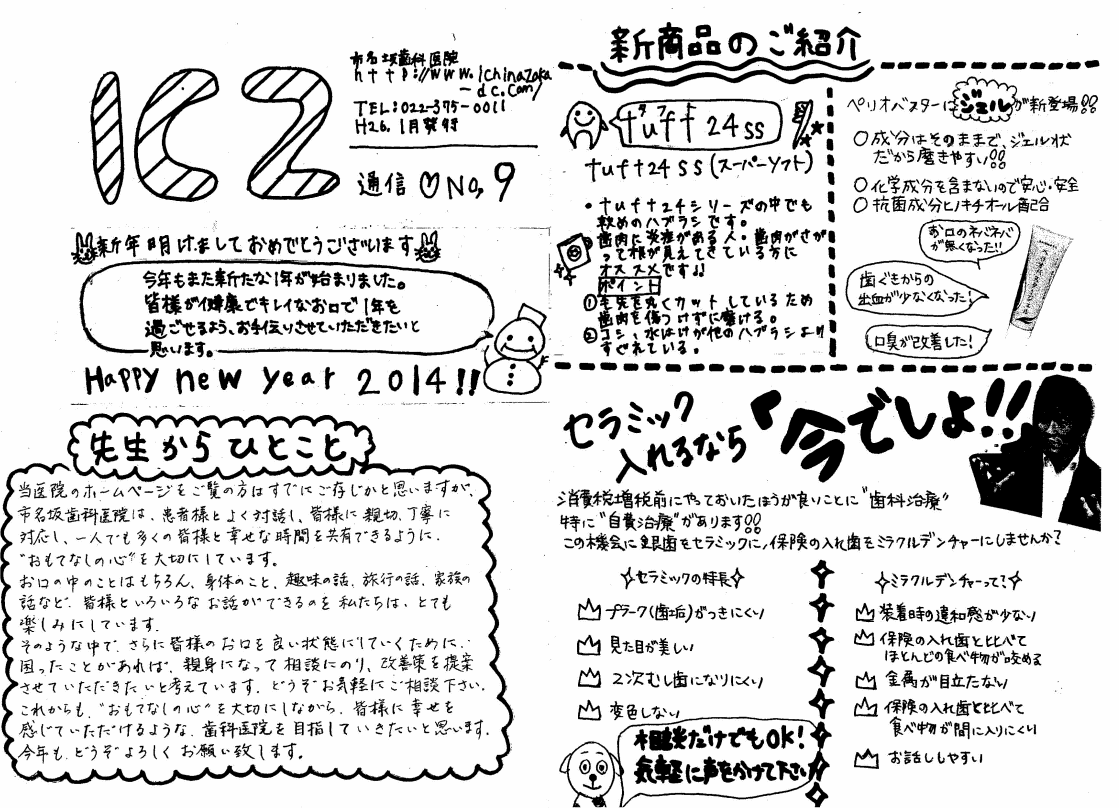 ICZ
市名坂歯科医院
http://www.ichinazaka
-dc.com/
TEL:022-375-0011
H26.1月発行
通信♡No,9
新年明けましておめでとうございます
今年もまた新たな1年が始まりました。
皆様が健康でキレイなお口で1年を
過ごせるよう、お手伝いさせていただきたいと
思います。
Happy new year 2014!!
先生からひとこと
当医院のホームページをご覧の方はすでにご存じかと思いますが、
市名坂歯科医院は、患者様とよく対話し、皆様に親切、丁寧に
対応し、一人でも多くの皆様と幸せな時間を共有できるように、
"おもてなしの心"を大切にしています。
お口の中のことはもちろん、身体のこと、趣味の話、旅行の話、家族の
話など、皆様といろいろなお話ができるのを私たちは、とても
楽しみにしています。
そのような中で、さらに皆様のお口を良い状態にしていくために、
困ったことがあれば、親身になって相談にのり、改善策を提案
させていただきたいと考えています。どうぞお気軽にご相談下さい。
これからも、"おもてなしの心"を大切にしながら、皆様に幸せを
感じていただけるような、歯科医院を目指していきたいと思います。
今年も、どうぞよろしくお願い致します。
新商品のご紹介
タフト
tuft 24 ss
tuft24 ss(スーパーソフト)
・tuft24シリーズの中でも
軟めのハブラシです。
・歯肉に炎症がある人・歯肉がさが
って根が見えてきている方に
オススメです!!
ポイント
①毛先を丸くカットしているため
歯肉を傷つけずに磨ける。
②コシ、水はけが他のハブラシより
すぐれている。
ペリオバスターにジェルが新登場!!
○成分はそのままで、ジェル状
だから磨きやすい!!
○化学成分を含まないので安心・安全
○抗菌成分ヒノキチオール配合
お口のネバネバ
が無くなった!!
歯ぐきからの
出血が少なくなった!
口臭が改善した!
セラミック
入れるなら
「今でしょ!!
消費税増税前にやっておいたほうが良いことに"歯科治療"
特に"自費治療"があります!!
この機会に銀歯をセラミックに、保険の入れ歯をミラクルデンチャーにしませんか?
セラミックの特長
プラーク(歯垢)がつきにくい
見た目が美しい
2次むし歯になりにくい
変色しない
相談だけでもOK!
気軽に声をかけて下さい
ミラクルデンチャーって?
装着時の違和感が少ない
保険の入れ歯と比べて
ほとんどの食べ物が咬める
金属が目立たない
保険の入れ歯と比べて
食べ物が間に入りにくい
お話ししやすい